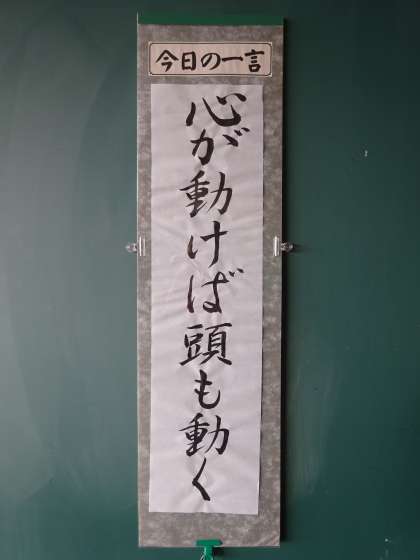 今日の一言
心が動けば頭も動く